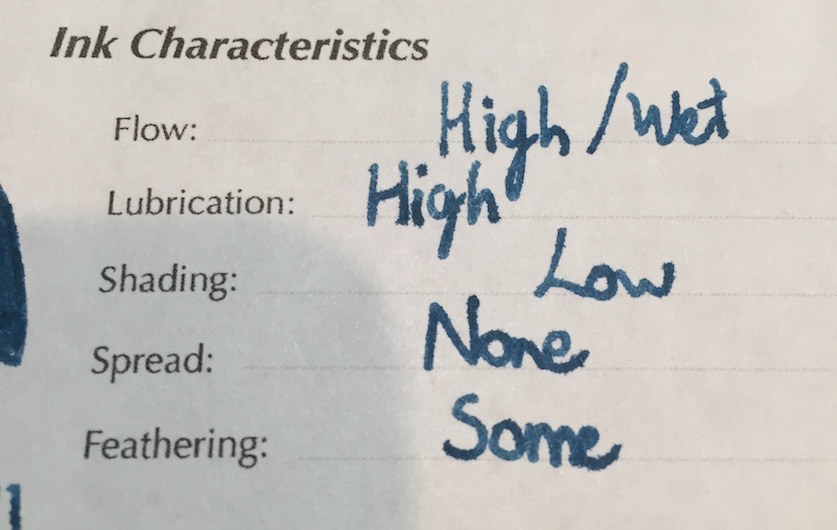 Ink Characteristics
Flow: High/Wet
Lubrication: High
Shading: Low
Spread: None
Feathering: Some